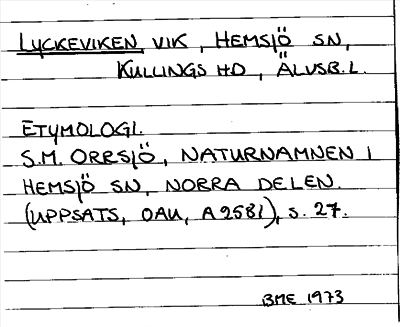 LYCKEVIKEN, VIK, HEMSJÖ SN,
KULLINGS HD, ÄLVSB.L.
ETYMOLOGI.
S.M. ORRSJÖ, NATURNAMNEN I
HEMSJÖ SN, NORRA DELEN.
(UPPSATS, OAU, A2581), S. 27.
BME 1973